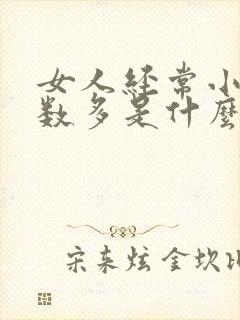 女人经常小
数多是什麽
宋来炫 金坎比